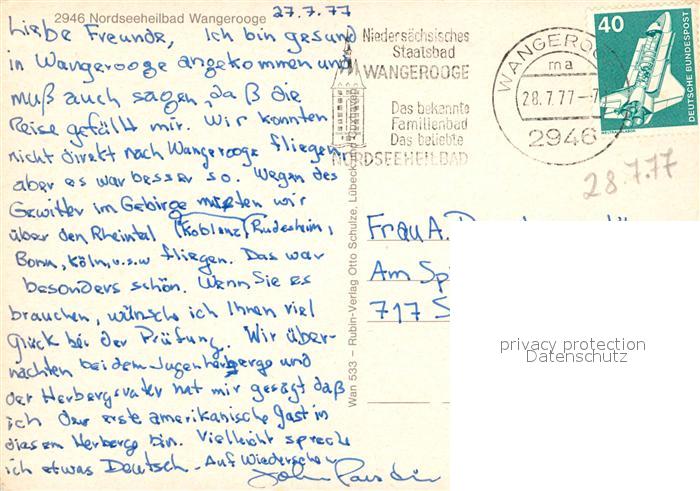 2946 Nordseeheilbad Wangerooge
27.7.77
Liebe Freunde, Ich bin gesund
in Wangerooge angekommen und
muß auch sagen, daß die
Reise gefällt mir. Wir konnten
nicht direkt nach Wangerooge fliegen
aber es war besser so. Wegen des
Gewitter im Gebirge mußten wir
über den Rheintal (Koblenz, Rudesheim,
Bonn, Köln, u.s.w fliegen. Das war
besonders schön. Wenn Sie es
brauchen, wünsche ich Ihnen viel
Glück bei der Prüfung. Wir über-
nachten bei dem Jugenherberge und
der Herbergsvater hat mir gesagt daß
ich der erste amerikanische Gast in
diesem Herberge bin. Vielleicht spreche
ich etwas Deutsch. Auf Wiedersehen
John
Niedersächsisches
Staatsbad
WANGEROOGE
Das bekannte
Familienbad
Das beliebte
NORDSEEHEILBAD
WANGEROOGE
ma
28.7.77-7
2946
40
DEUTSCHE BUNDESPOST
28.7.77
Wan 533 – Rubin-Verlag Otto Schulze, Lübeck
Frau A.
Am Sp
717 S
privacy protection
Datenschutz